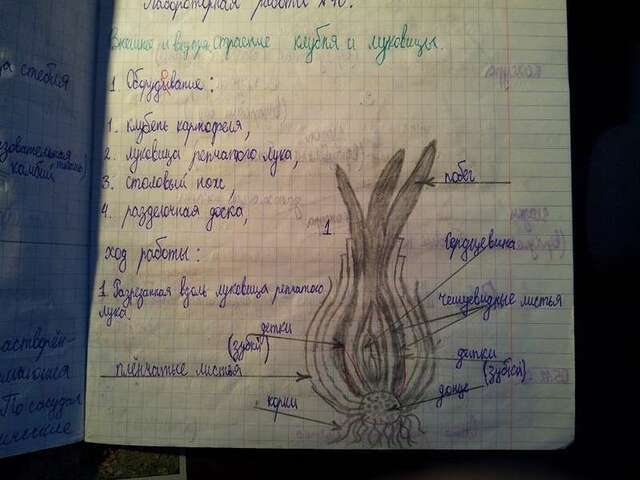 Лабораторная работа №10.
Внешнее и строение клубня и луковицы.
1 Оборудывание:
1. клубень картофеля,
2. луковица репчатого лука,
3. столовый нож,
4. разделочная доска,
ход работы:
1. Разрезанная вдоль луковица репчатого
лука.
1
побег
Сердцевина
чешуевидные листья
детки
(зубки)
детки
(зубки)
плёнчатые листья
донце
корни
ца стебля
зовательная
камбий
растворён-
По сосудам